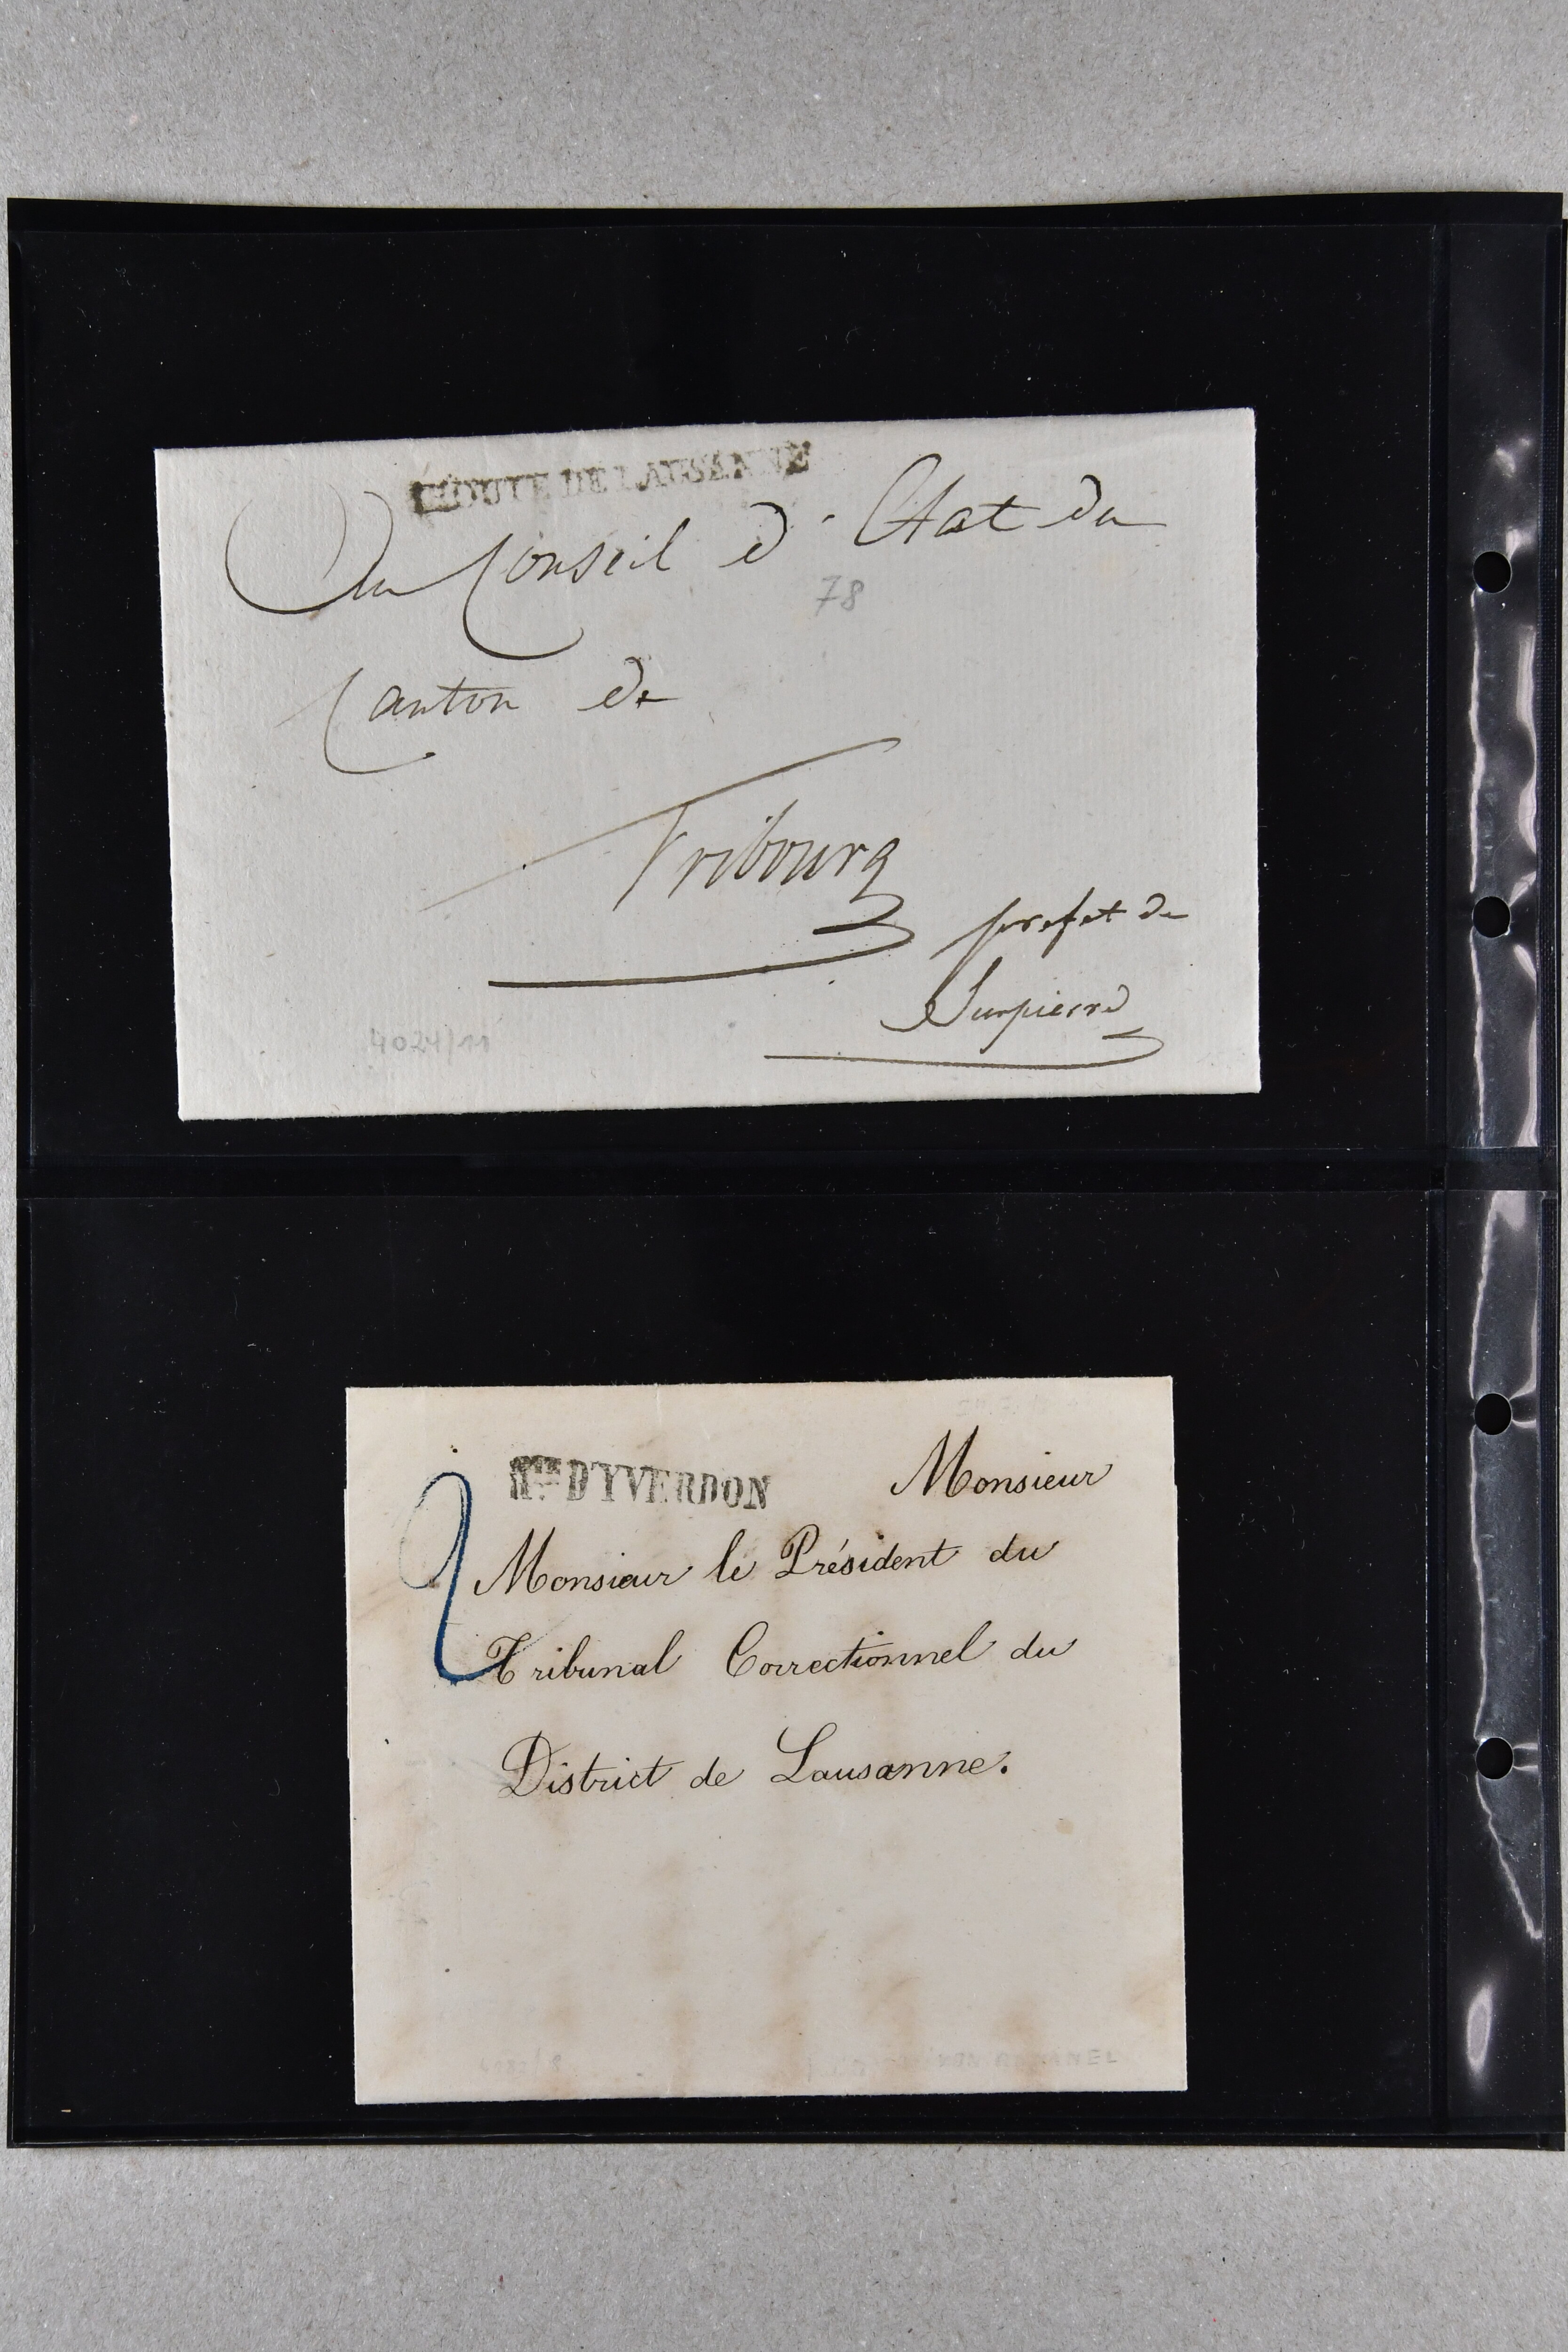 ROUTE DE LAUSANNE
Au Conseil d'Etat du
78
Canton de
Fribourg
prefet de
Surpierre
4024/11
Rte D'YVERDON
Monsieur
2
Monsieur le Président du
Tribunal Correctionnel du
District de Lausanne.